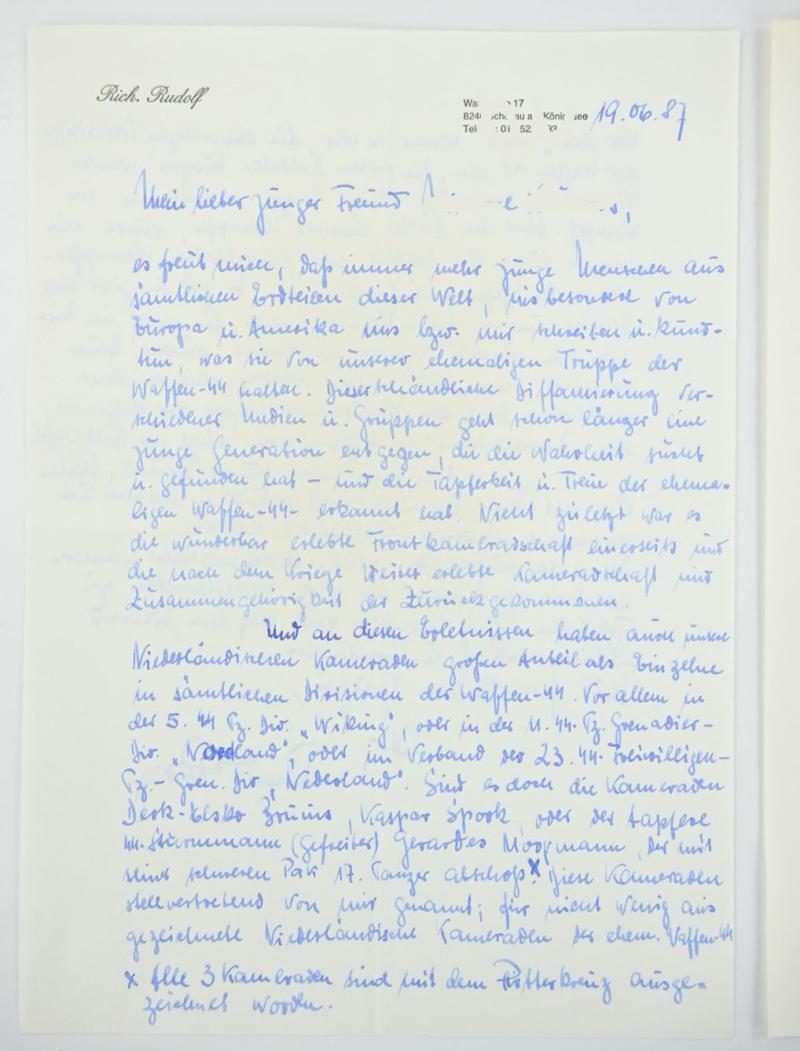 Rich. Rudolf
17
Tel 52
19.06.87
Mein lieber junger Freund !
es freut mich, daß immer mehr junge Menschen aus
sämtlichen Erdteilen dieser Welt, insbesondere von
Europa u. Amerika uns bzw. mir schreiben u. kund-
tun, was sie von unserer ehemaligen Truppe der
Waffen-44 halten. Dieser schändliche Diffamierung ver-
schiedener Medien u. Gruppen geht schon länger eine
junge Generation entgegen, die die Wahrheit sucht
u. gefunden hat – und die Tapferkeit u. Treue der ehema-
ligen Waffen-44- erkannt hat. Nicht zuletzt war es
die wunderbar erlebte Frontkameradschaft einerseits und
die nach dem Kriege weiter erlebte Kameradschaft und
Zusammengehörigkeit der Zurückgekommenen.
Und an diesen Erlebnissen haben auch unsere
Niederländischen Kameraden großen Anteil als Einzelne
in sämtlichen Divisionen der Waffen-44. Vor allem in
der 5. 44 Pz. Div. „Wiking", oder in der 11. 44. Pz. Grenadier-
Div. „Nordland", oder im Verband der 23. 44. Freiwilligen-
Pz.- Gren. Div „Nederland". Sind es doch die Kameraden
Derk-Elsko Bruins, Kaspar Sporck, oder der tapfere
44-Sturmmann (Gefreiter) Gerardes Mooymann, der mit
seiner schweren Pak 17. Panzer abschoß. x Diese Kameraden
stellvertretend von mir genannt; für nicht wenig aus
gezeichnete Niederländische Kameraden der ehem. Waffen-44
x Alle 3 Kameraden sind mit dem Ritterkreuz ausge-
zeichnet worden.